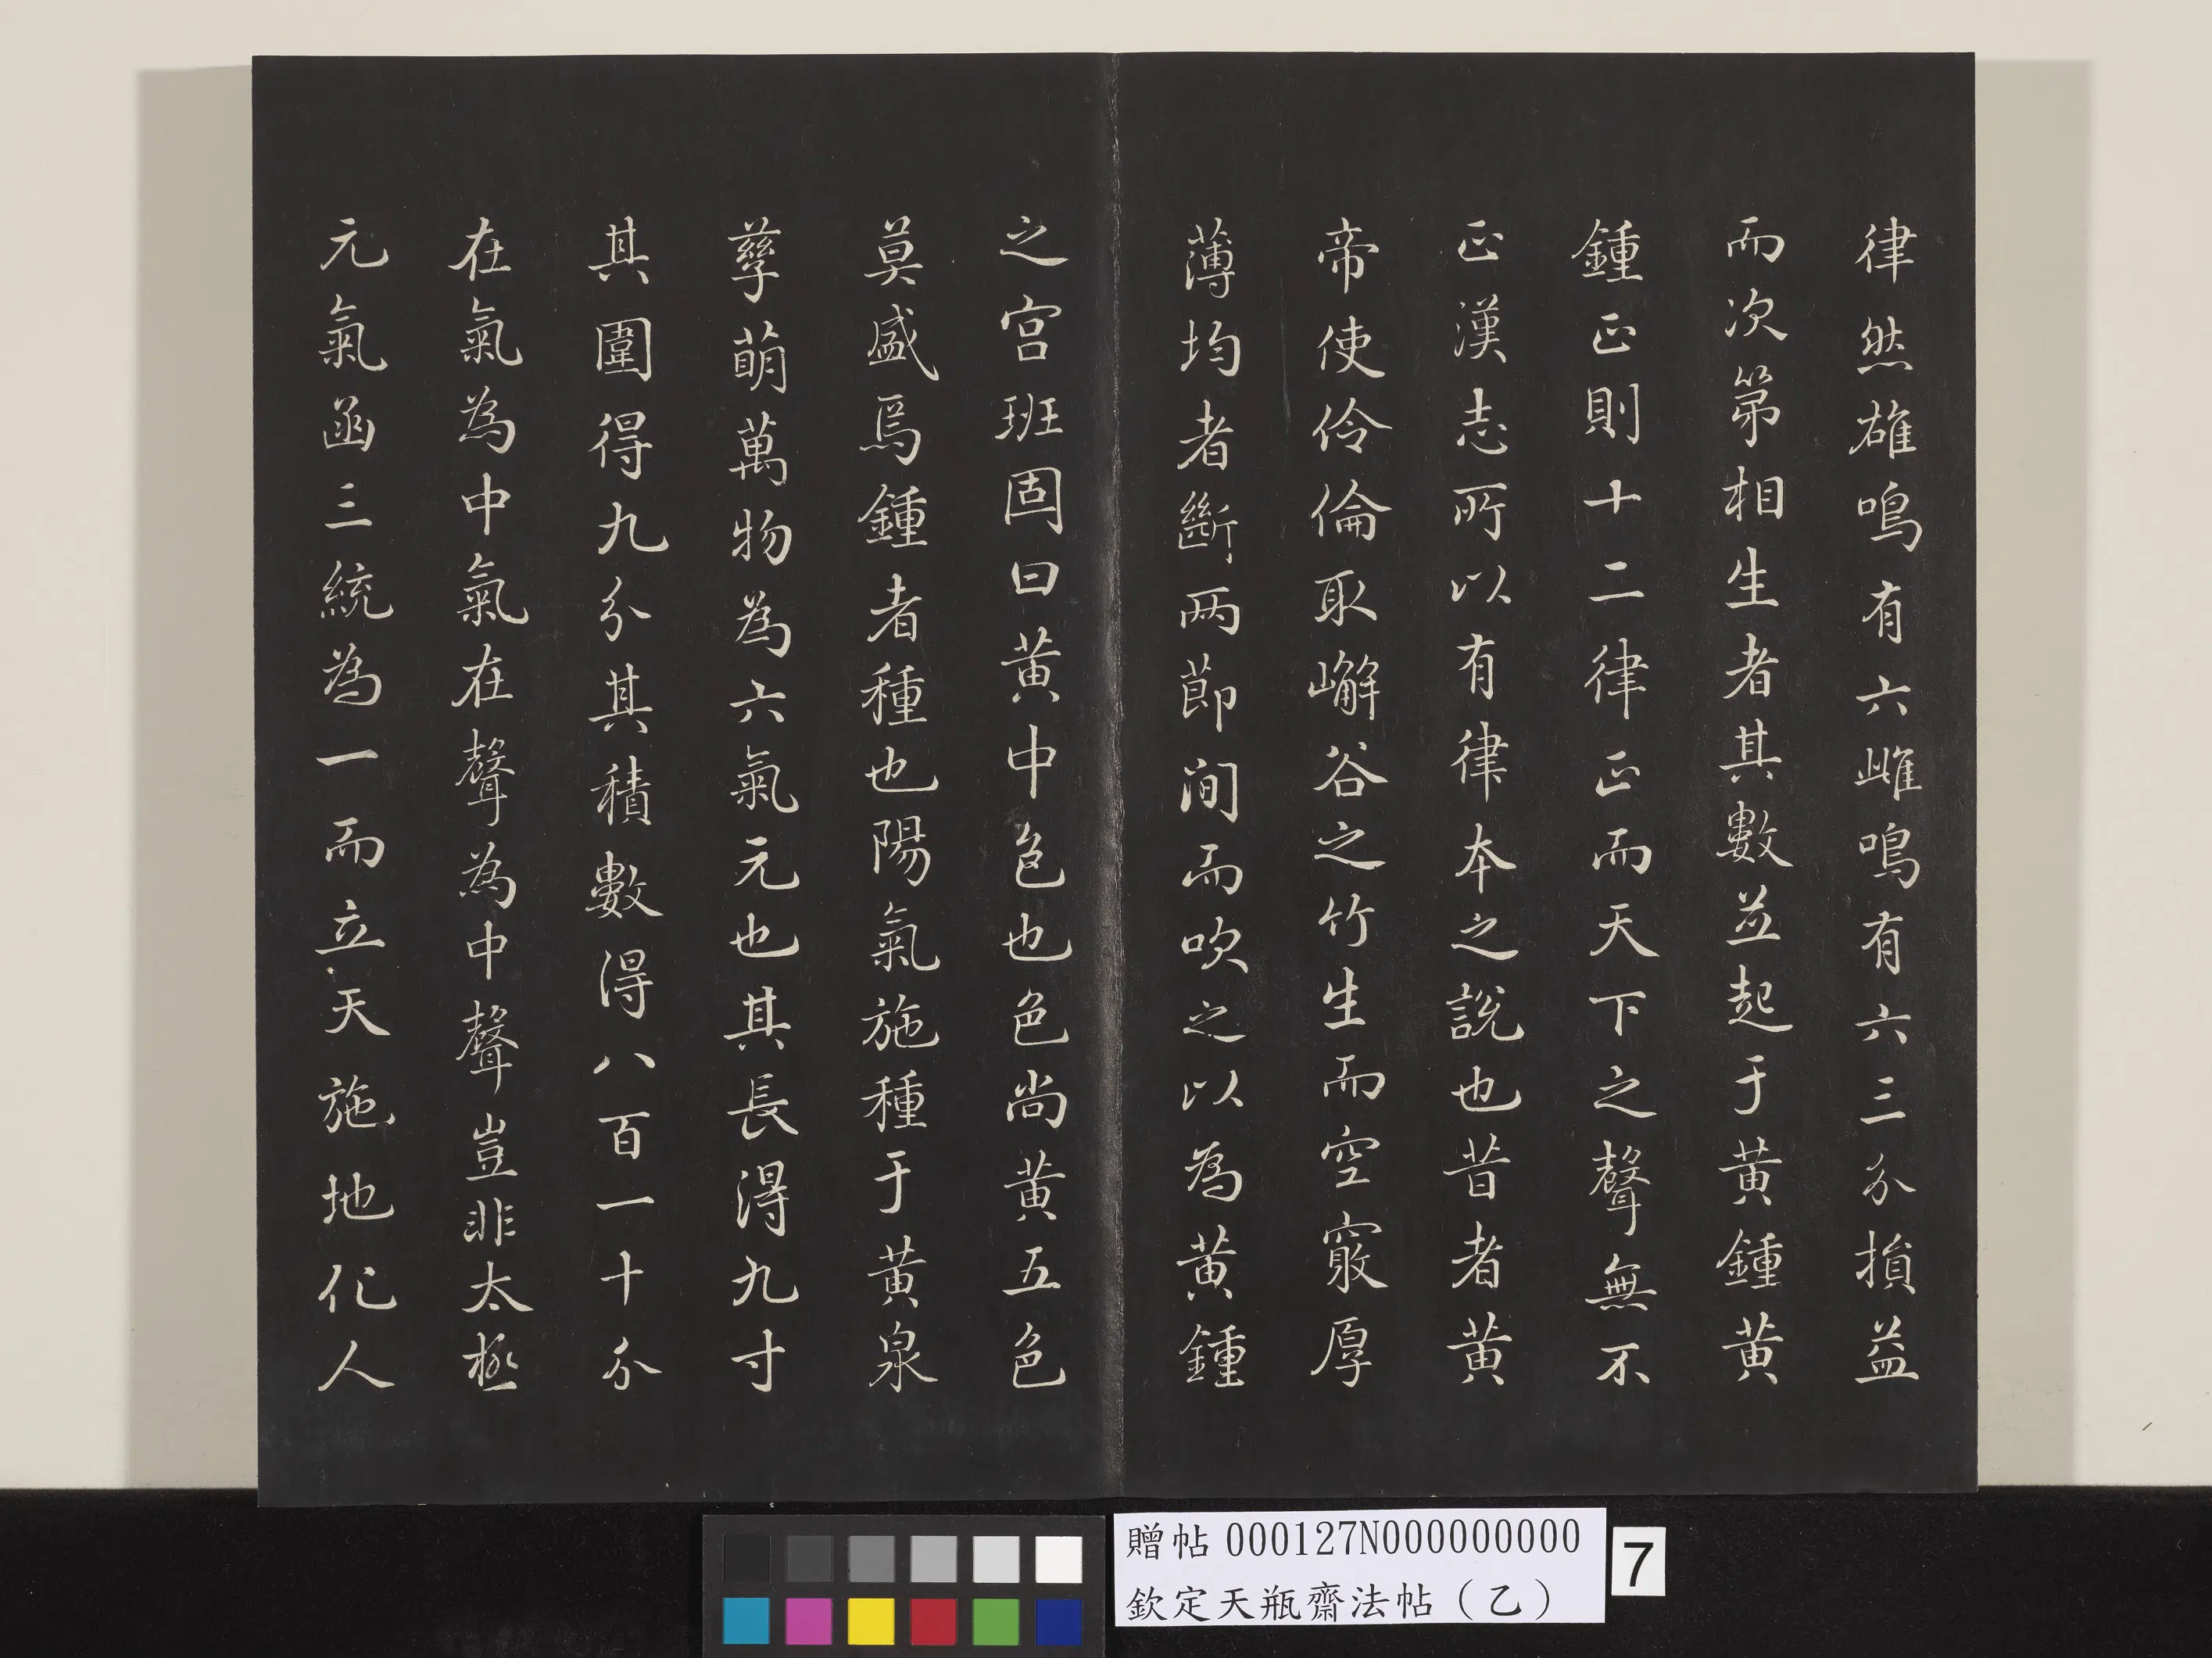 律然雄鳴有六雌鳴有六三分損益
而次第相生者其數並起于黃鍾黃
鍾正則十二律正而天下之聲無不
正漢志所以有律本之說也昔者黃
帝使伶倫取嶰谷之竹生而空竅厚
薄均者斷两節間而吹之以為黃鍾
之宮班固曰黃中色也色尚黃五色
莫盛焉鍾者種也陽氣施種于黃泉
孳萌萬物為六氣元也其長得九寸
其圍得九分其積數得八百一十分
在氣為中氣在聲為中聲豈非太極
元氣函三統為一而立天施地化人
贈帖 000127N000000000
欽定天瓶齋法帖（乙）
7